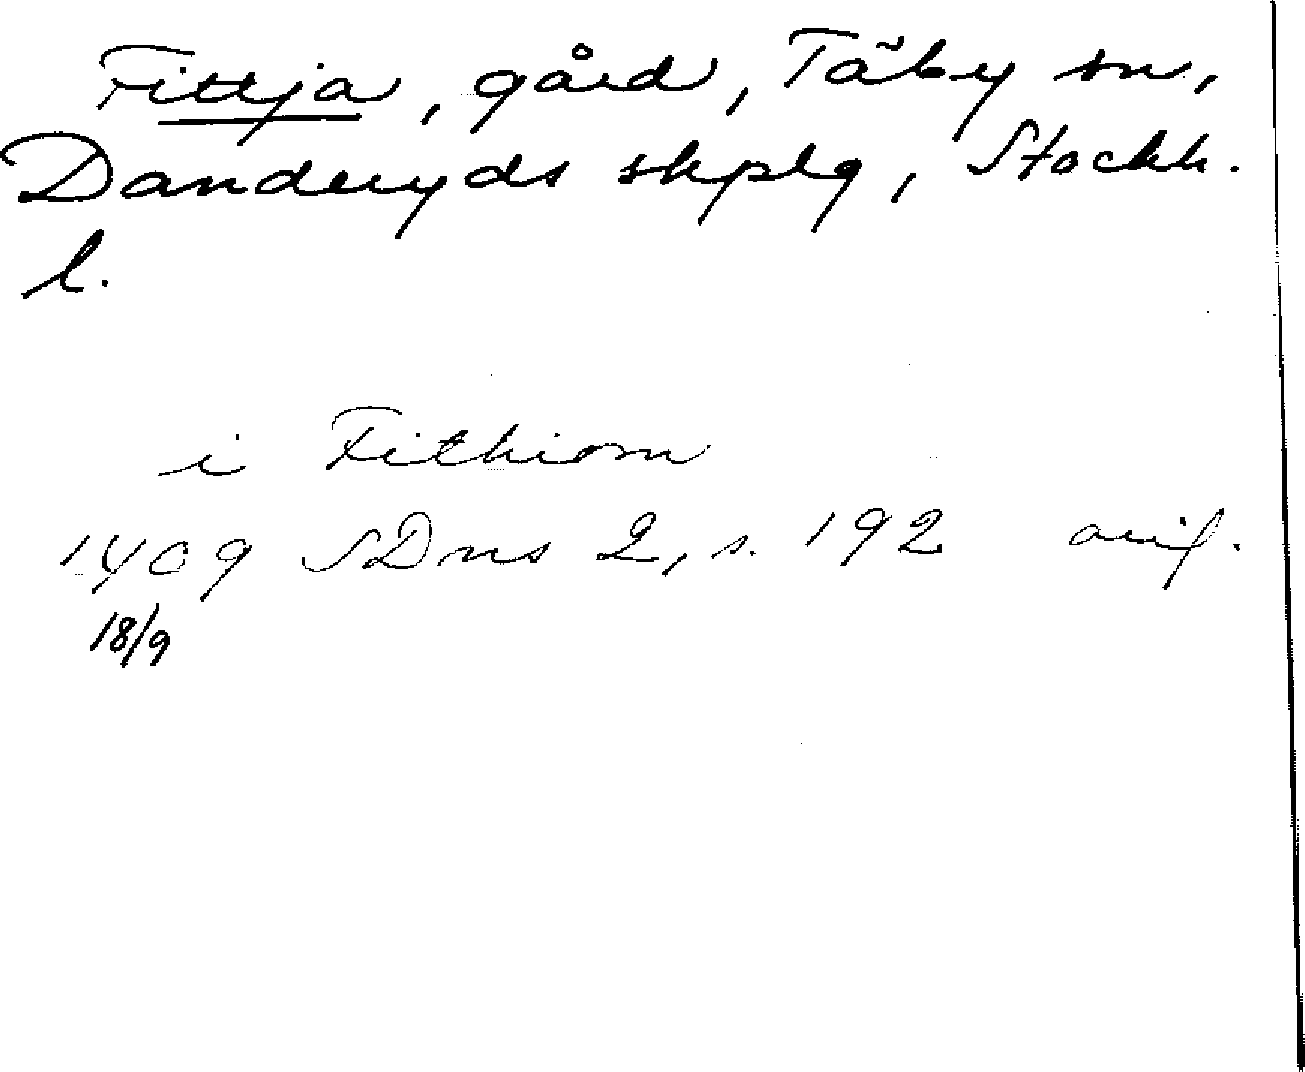 Fittja, gård, Täby sn,
Danderyds skplg, Stockh.
l.
i Fithiom
1409 SDns 2, s. 192 avif.
18/9